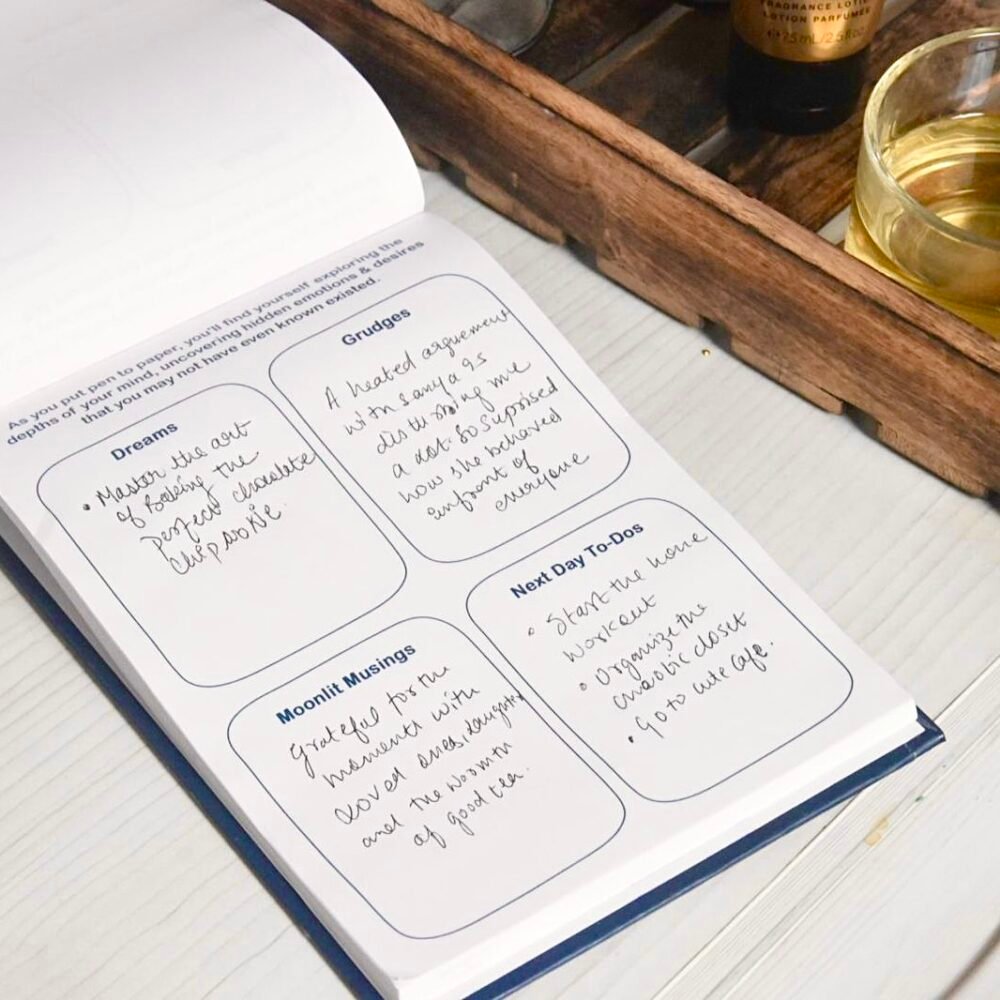 FRAGRANCE LOTION
LOTION PARFUMÉE
75 mL/2.5 fl oz
As you put pen to paper, you'll find yourself exploring the
depths of your mind, uncovering hidden emotions & desires
that you may not have even known existed.
Dreams
• Master the art
of Baking the
perfect chocolate
chip cookie.
Grudges
A heated arguement
with sanya is
disturbing me
a lot. So suprised
how she behaved
infront of
everyone
Moonlit Musings
Grateful for the
moments with
loved ones, laughter
and the warmth
of good tea.
Next Day To-Dos
• Start the home
workout
• Organize the
chaotic closet
• Go to cute cafe.